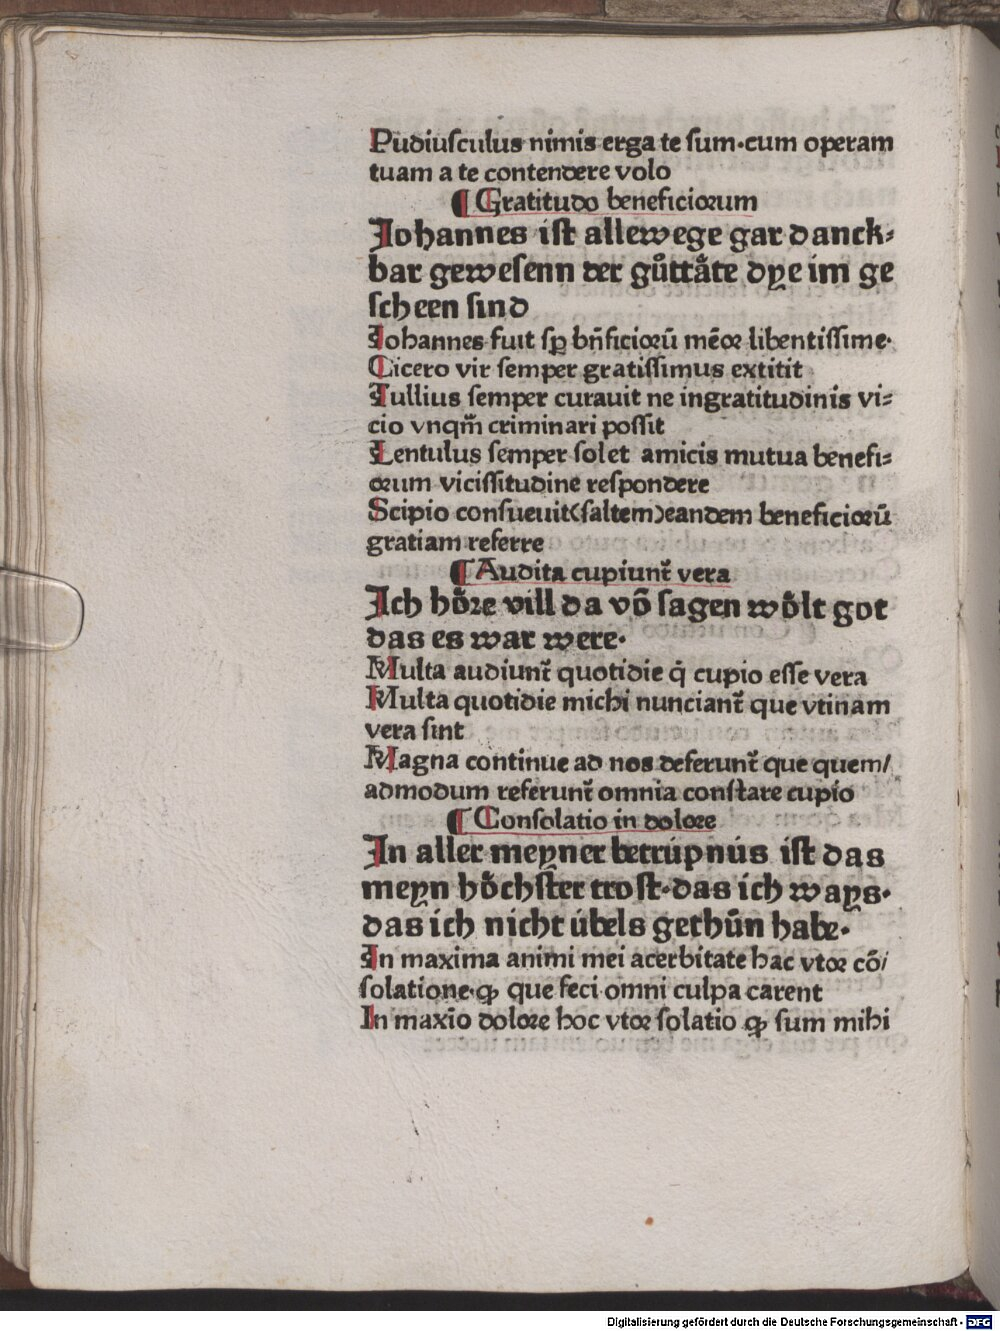 Pudiusculus nimis erga te sum·cum operam
tuam a te contendere volo
¶ Gratitudo beneficiorum
Johannes ist allewege gar danck⸗
bar gewesenn der gůttåte dye im ge
scheen sind
Johannes fuit sꝑ bn̄ficiorū mēor libentissime·
Cicero vir semper gratissimus extitit
Tullius semper curauit ne ingratitudinis vi⸗
cio vnqm̄ criminari possit
Lentulus semper solet amicis mutua benefi⸗
orum vicissitudine respondere
Scipio consueuit(saltem)eandem beneficiorū
gratiam referre
¶ Audita cupiunt᷑ vera
Ich hȯ̈re vill da vō sagen wȯ̈lt got
das es war were·
Multa audiunt᷑ quotidie q̄ cupio esse vera
Multa quotidie michi nunciant᷑ que vtinam
vera sint
Magna continue ad nos deferunt᷑ que quem/
admodum referunt᷑ omnia constare cupio
¶ Consolatio in dolore
In aller meyner betrúpnús ist das
meyn hȯ̈chster trost·das ich ways·
das ich nicht úbels gethůn habe·
In maxima animi mei acerbitate hac vtor cō/
solatione·ꝙ que feci omni culpa carent
In maxīo dolore hoc vtor solatio ꝙ sum mihi
Digitalisierung gefördert durch die Deutsche Forschungsgemeinschaft - DFG